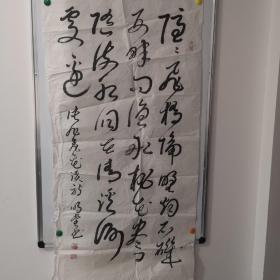 隱々飛橋隔野煙石磯
西畔問漁船桃花盡日
隨流水洞在清溪何
處邊
張旭桃花溪詩